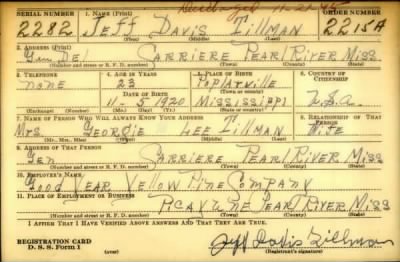 SERIAL NUMBER 1. NAME (Print) ORDER NUMBER
2282 Jeff Davis Tillman 2215A
(First) (Middle) (Last)
2. ADDRESS (Print)
Gen Del Carriere Pearl River Miss
(Number and street or R. F. D. number) (Town) (County) (State)
3. TELEPHONE 4. AGE IN YEARS 5. PLACE OF BIRTH 6. COUNTRY OF CITIZENSHIP
none 23 Poplarville
DATE OF BIRTH (Town or county)
11-5 1920 Mississippi U.S.A
(Exchange) (Number) (Mo.) (Day) (Yr.) (State or country)
7. NAME OF PERSON WHO WILL ALWAYS KNOW YOUR ADDRESS 8. RELATIONSHIP OF THAT PERSON
Mrs. Geordie Lee Tillman Wife
(Mr., Mrs., Miss) (First) (Middle) (Last)
9. ADDRESS OF THAT PERSON
Gen Carriere Pearl River Miss
(Number and street or R. F. D. number) (Town) (County) (State)
10. EMPLOYER'S NAME
Good Year Yellow Pine Company
11. PLACE OF EMPLOYMENT OR BUSINESS
Picayune Pearl River Miss
(Number and street or R. F. D. number) (Town) (County) (State)
I AFFIRM THAT I HAVE VERIFIED ABOVE ANSWERS AND THAT THEY ARE TRUE.
REGISTRATION CARD
D. S. S. Form 1
Jeff Davis Tillman
(Registrant's signature)